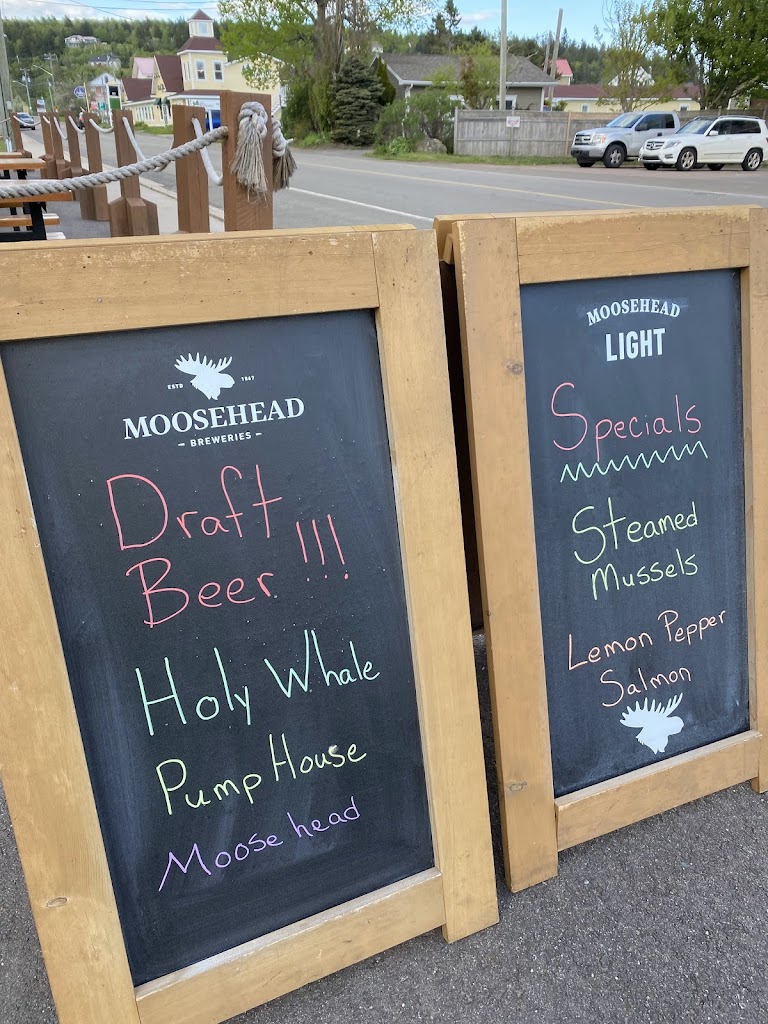 ESTD 1867
MOOSEHEAD
– BREWERIES –
Draft
Beer !!!
Holy Whale
Pump House
Moosehead
MOOSEHEAD
LIGHT
Specials
Steamed
Mussels
Lemon Pepper
Salmon